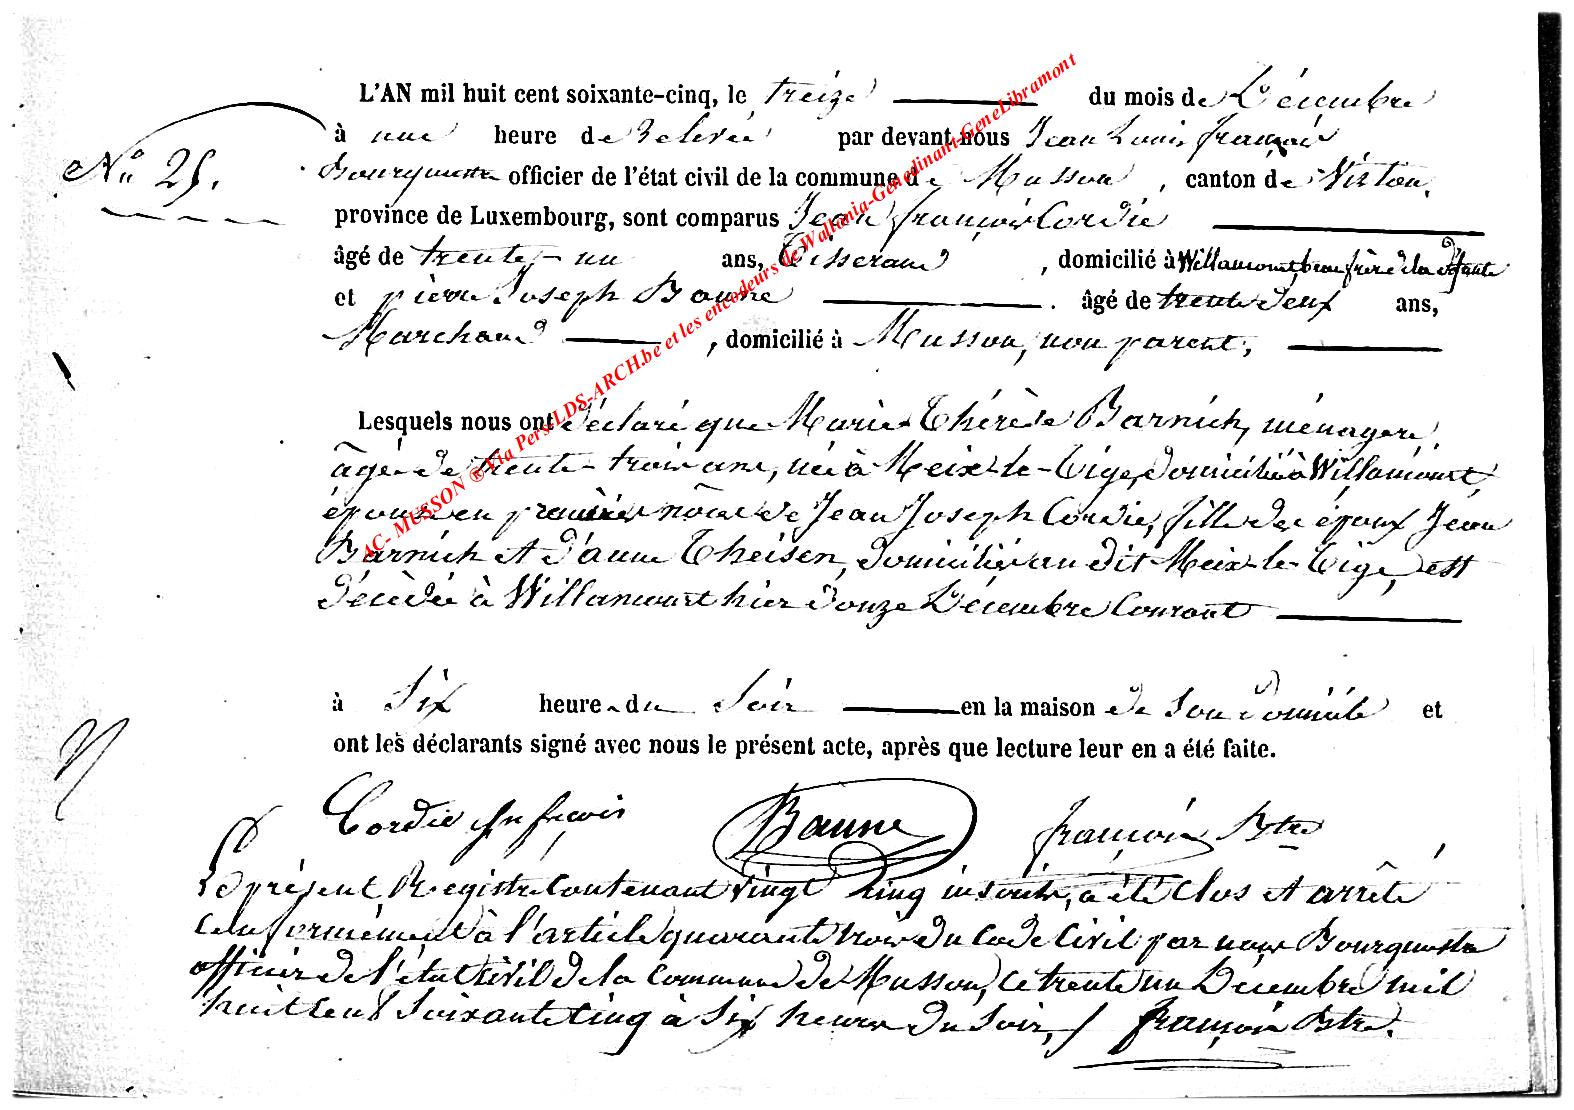 L'AN mil huit cent soixante-cinq, le treize du mois de Décembre
à une heure de relevée par devant nous Jean Louis françois
No 25. Bourgmestre officier de l'état civil de la commune de Musson, canton de Virton,
province de Luxembourg, sont comparus Jean françois Cordie
âgé de trente-un ans, Tisserand, domicilié à Willancourt, beau frère de la défunte
et pierre Joseph Baune. âgé de trente deux ans,
Marchand, domicilié à Musson, non parent,
Lesquels nous ont déclaré que Marie-Thérèse Barnich, ménagère,
âgée de trente-trois ans, née à Meix-le-Tige, domiciliée à Willancourt,
épouse en premières nôces de Jean Joseph Cordie, fille des époux Jean
Barnich et d'anne Theisen, domiciliés au dit Meix-le-Tige, est
décédée à Willancourt hier douze Décembre Courant
à Six heure du Soir en la maison de son domicile et
ont les déclarants signé avec nous le présent acte, après que lecture leur en a été faite.
Cordie Jn fçois Baune françois Btre
Le présent Registre Contenant vingt Cinq inscrits, a été Clos et arrêté
Conformément à l'article quarante trois du Code Civil par nous Bourgmestre
officier de l'état Civil de la Commune de Musson, Ce trente un Décembre mil
huit Cent Soixante Cinq à Six heures du Soir, françois Btre.
AC- MUSSON ® Via Pers-LDS-ARCH.be et les encodeurs de Wallonia-Genedinant-GeneLibramont